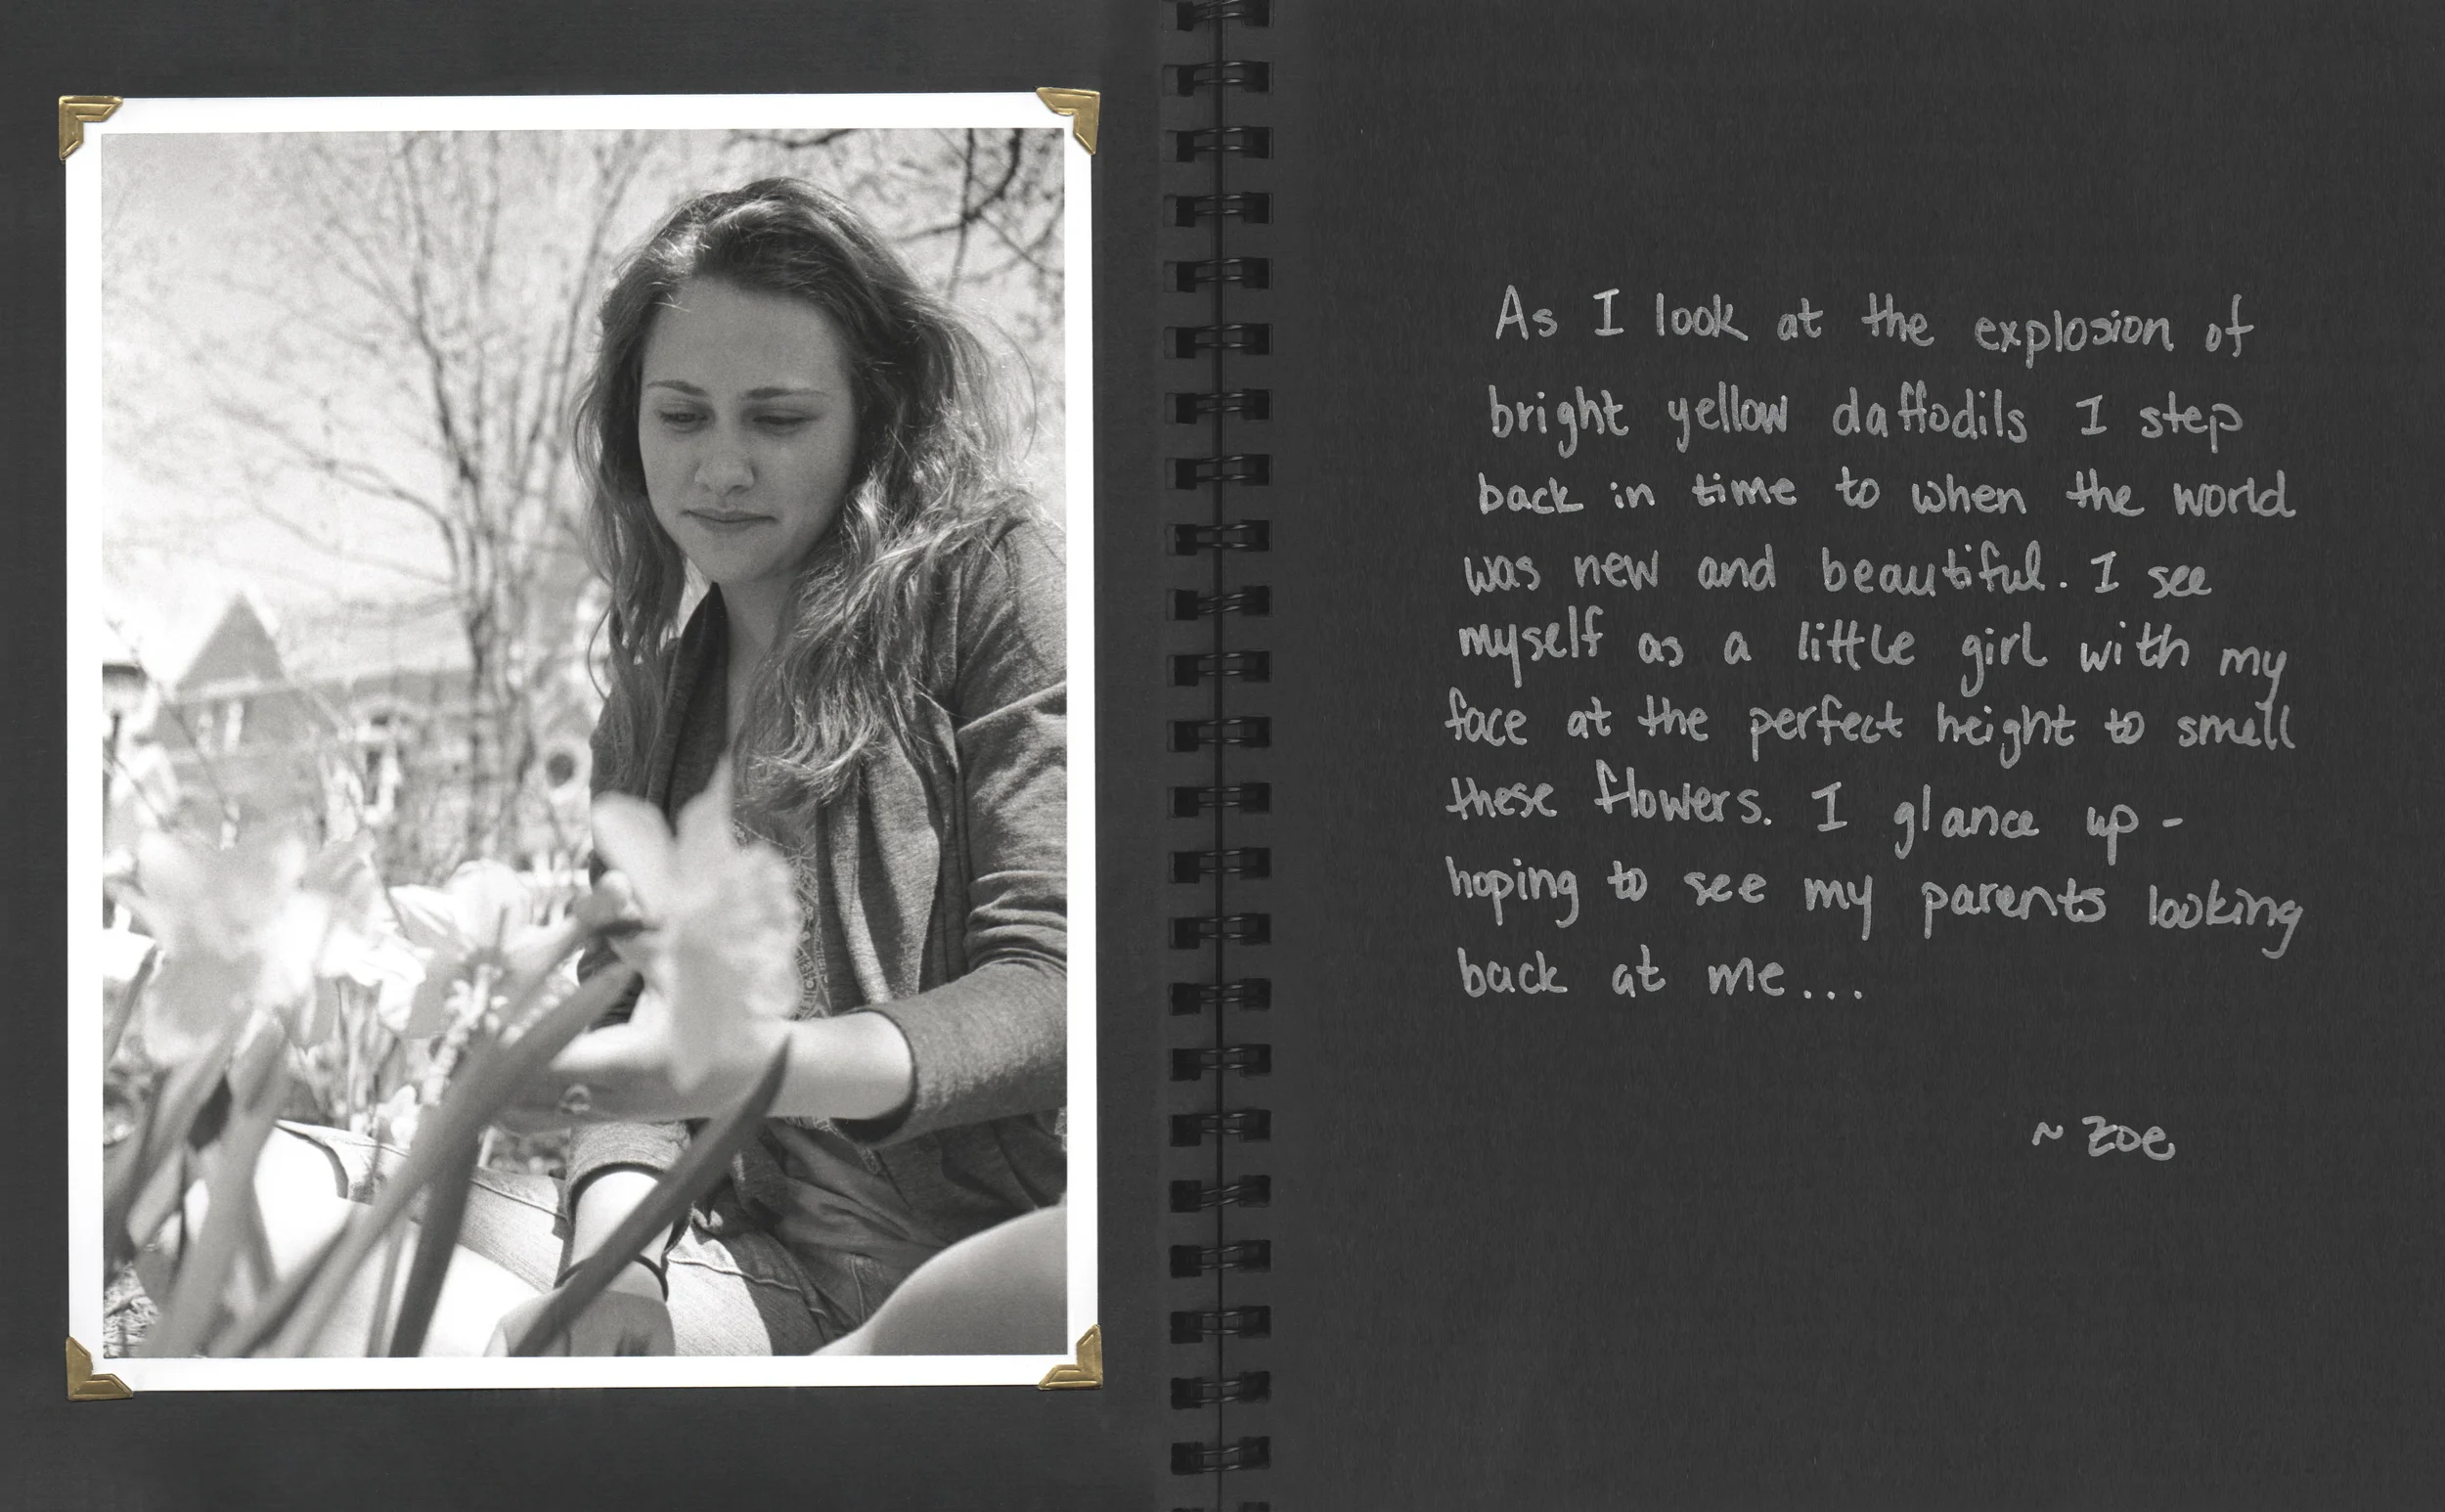 As I look at the explosion of
bright yellow daffodils I step
back in time to when the world
was new and beautiful. I see
myself as a little girl with my
face at the perfect height to smell
these flowers. I glance up -
hoping to see my parents looking
back at me...
~ Zoe